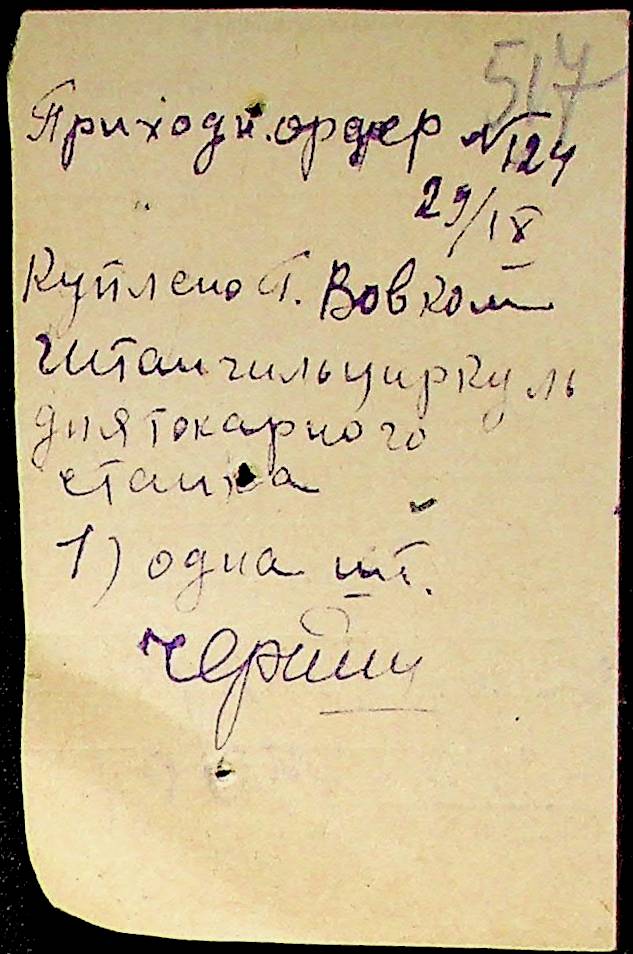 517
Приходн. ордер №124
29/IX
Куплено т. Вовком
Штангильциркуль
для токарного
станка
1) одна шт.